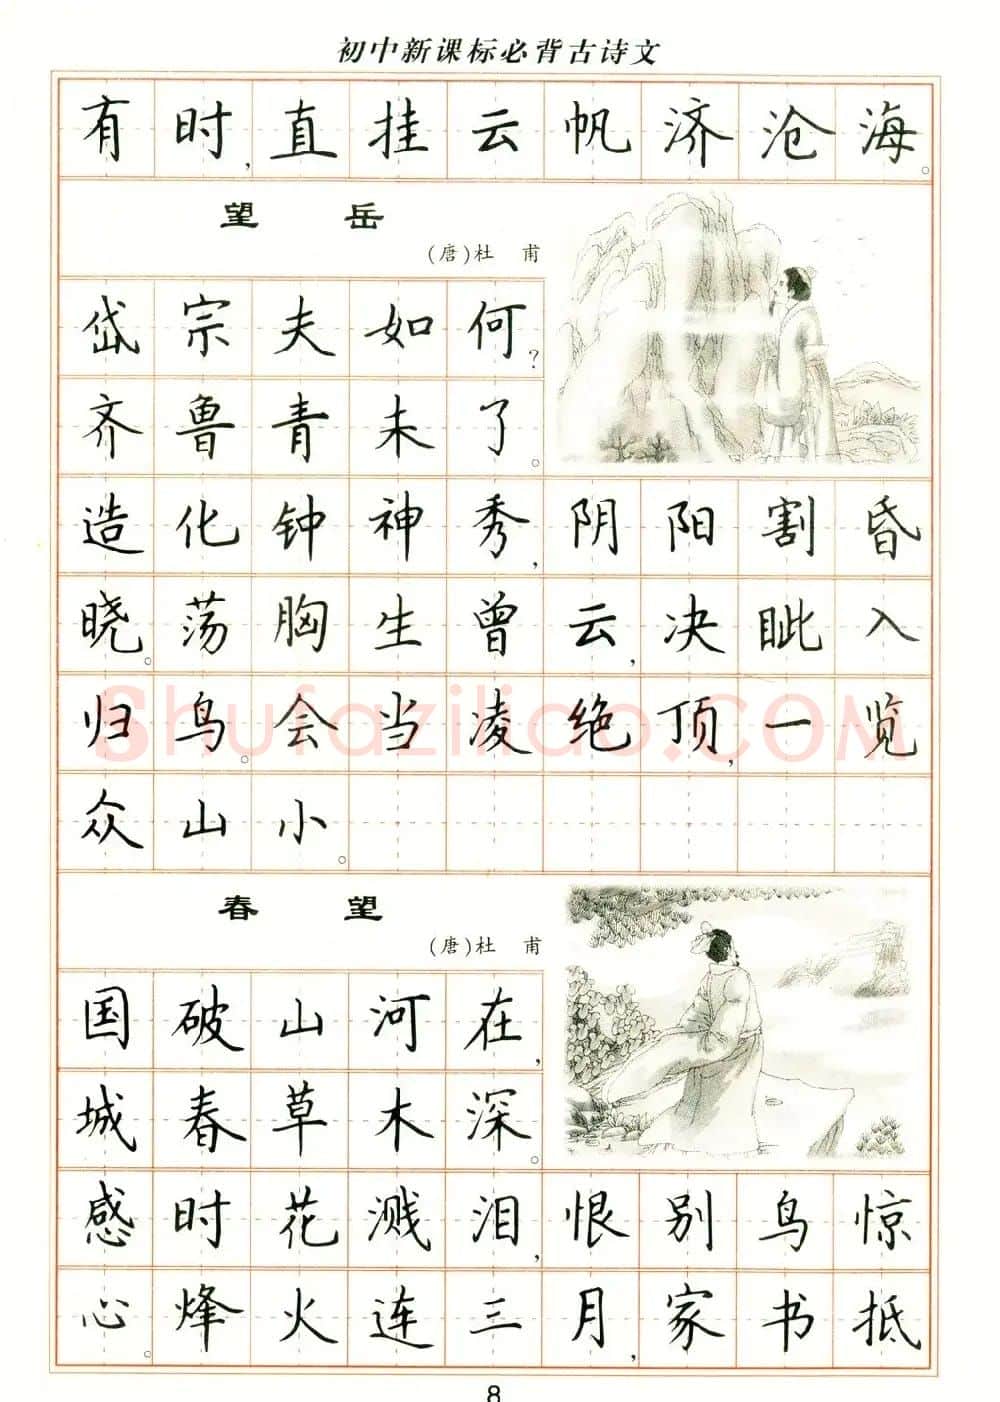 初中新课标必背古诗文
有时,直挂云帆济沧海。
望岳
(唐)杜甫
岱宗夫如何?
齐鲁青未了。
造化钟神秀,阴阳割昏
晓。荡胸生曾云,决眦入
归鸟。会当凌绝顶,一览
众山小。
Shufaziliao.COM
春望
(唐)杜甫
国破山河在,
城春草木深。
感时花溅泪,恨别鸟惊
心。烽火连三月,家书抵
8